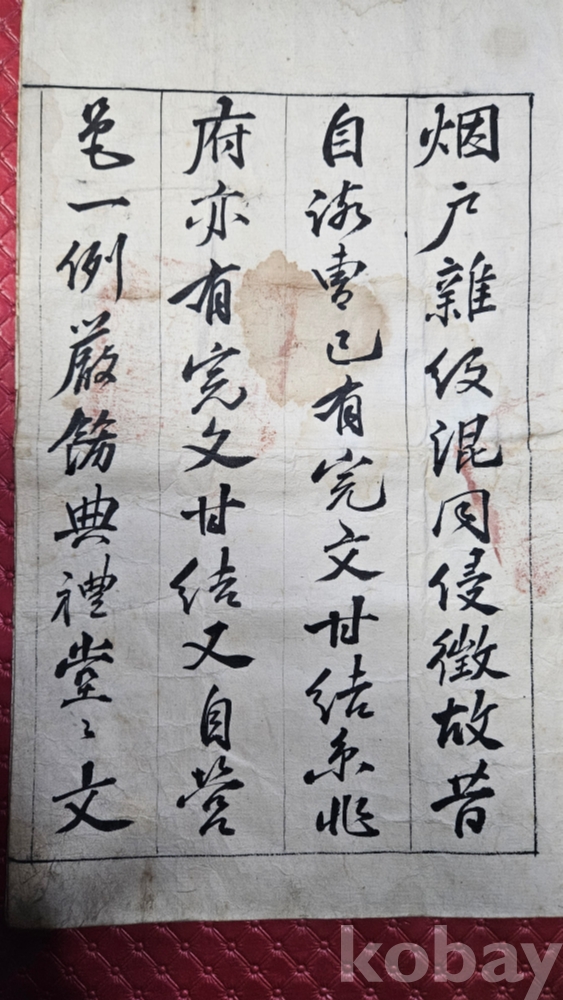 烟戶雜役混同侵徵故昔
自該曺已有完文甘結京兆
府亦有完文甘結又自營
邑一例嚴飭典禮堂〻文
kobay